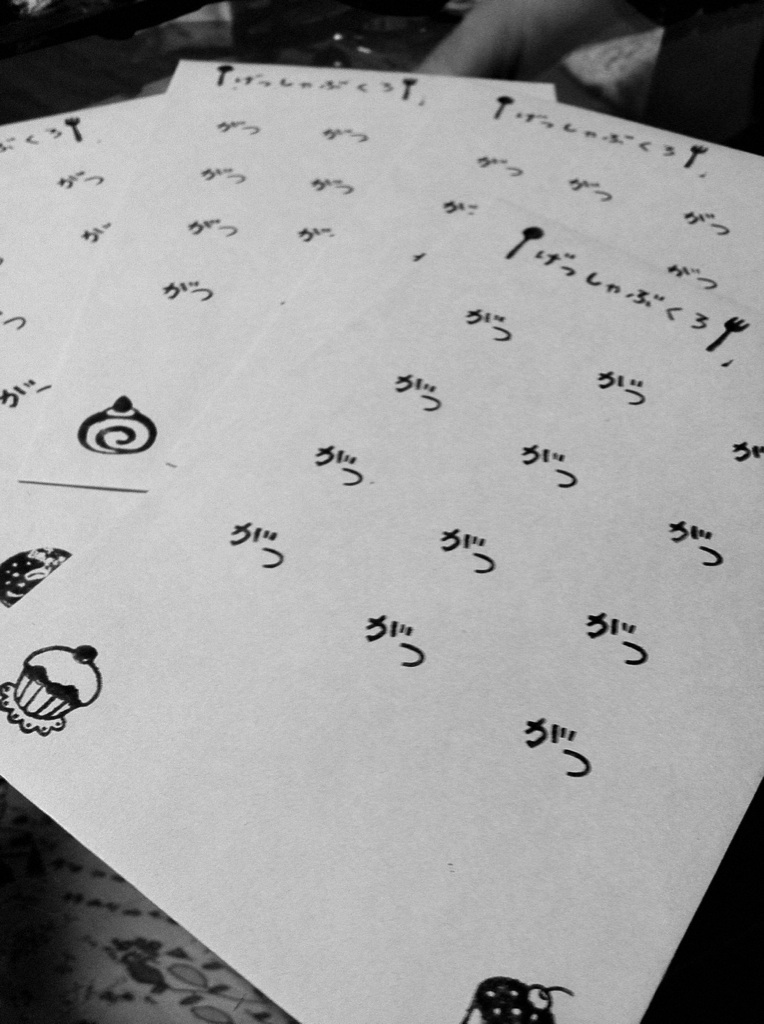 くろ
がつ
が
つ
が
げっしゃぶくろ
がつ がつ
がつ がつ
がつ が
がつ
げっしゃぶくろ
がつ がつ がつ
が がつ
げっしゃぶくろ
がつ
がつ がつ
がつ がつ が
がつ がつ がつ
がつ がつ
がつ